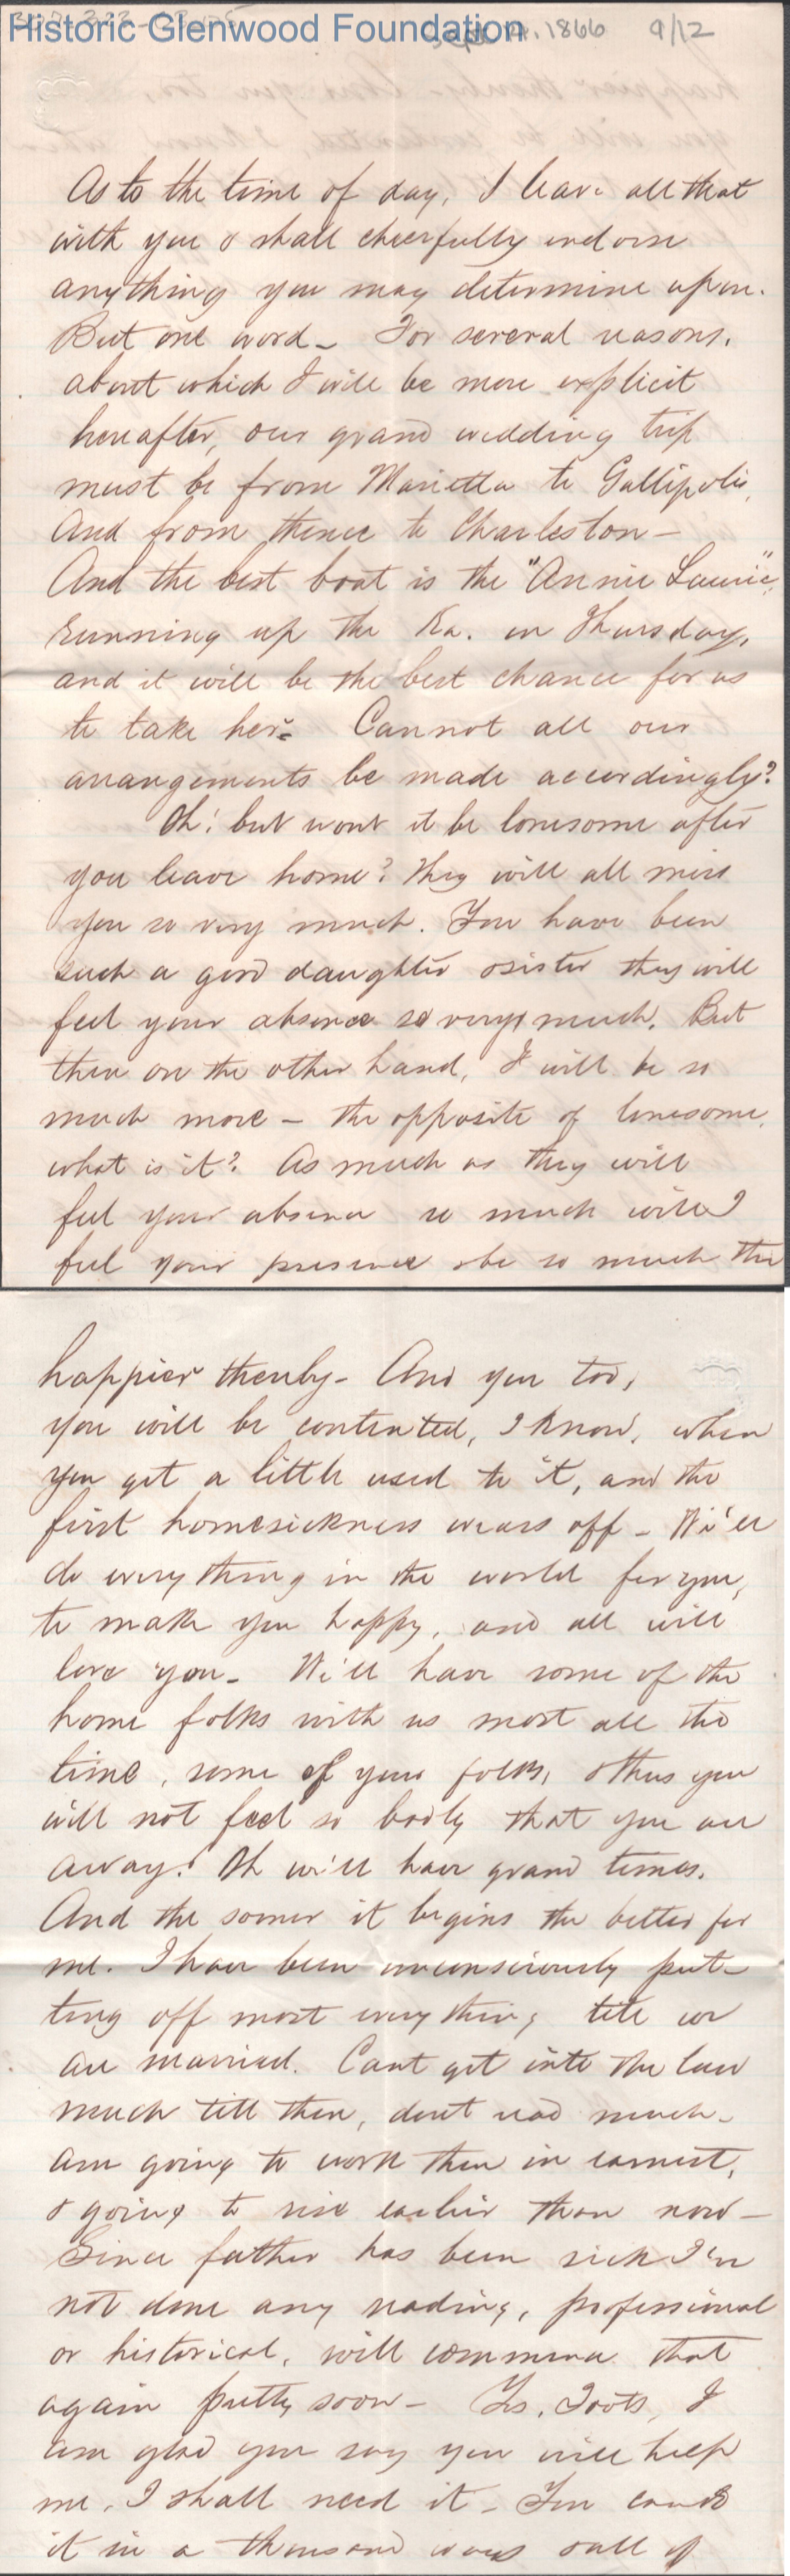 Historic Glenwood Foundation
1866 9/12
As to the time of day, I leave all that
with you & shall cheerfully endorse
anything you may determine upon.
But one word - For several reasons,
about which I will be more explicit
hereafter, our grand wedding trip
must be from Marietta to Gallipolis,
And from thence to Charleston -
And the best boat is the "Annie Laurie",
running up the Ka. on Thursday,
and it will be the best chance for us
to take her. Cannot all our
arrangements be made accordingly?
Oh! but wont it be lonesome after
you leave home? They will all miss
you so very much. You have been
such a good daughter & sister they will
feel your absence so very much. But
then on the other hand, I will be so
much more - the opposite of lonesome,
what is it? As much as they will
feel your absence so much will I
feel your presence & be so much the
happier thereby - And you too,
you will be contented, I know, when
you get a little used to it, and the
first homesickness wears off - We'll
do everything in the world for you,
to make you happy, and all will
love you - We'll have some of the
home folks with us most all the
time, some of your folks, & thus you
will not feel so badly that you are
away! Oh we'll have grand times.
And the sooner it begins the better for
me. I have been unconsciously put-
ting off most everything till we
are married. Cant get into the law
much till then, dont read much -
Am going to work then in earnest,
& going to rise earlier than now -
Since father has been sick I've
not done any reading, professional
or historical, will commence that
again pretty soon - Toots, I
am glad you say you will help
me, I shall need it - You can do
it in a thousand ways & all of